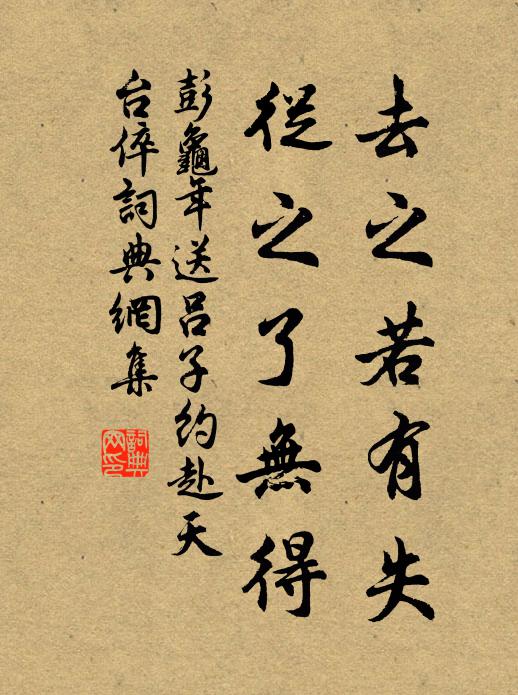 去之若有失
從之了無得
彭龜年送呂子約赴天
台倅詞典網集
詞典
网印